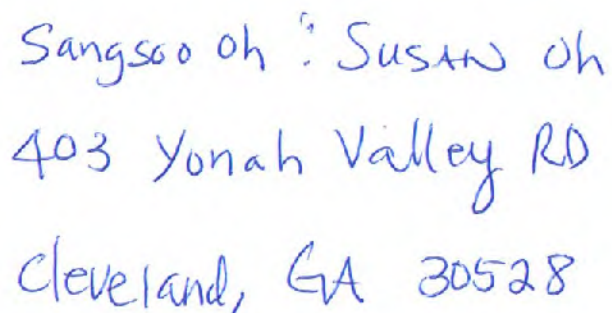 Sangsoo Oh : SUSAN Oh
403 Yonah Valley RD
Cleveland, GA 30528